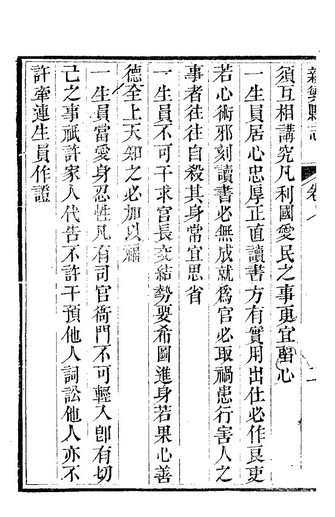 新興縣志 卷八 二
須互相講究凡利國愛民之事更宜留心
一生員居心忠厚正直讀書方有實用出仕必作良吏
若心術邪刻讀書必無成就爲官必取禍患行害人之
事者往往自殺其身常宜思省
一生員不可干求官長交結勢要希圖進身若果心善
德全上天知之必加以福
一生員當愛身忍性凡有司官衙門不可輕入即有切
己之事祇許家人代告不許干預他人詞訟他人亦不
許牽連生員作證